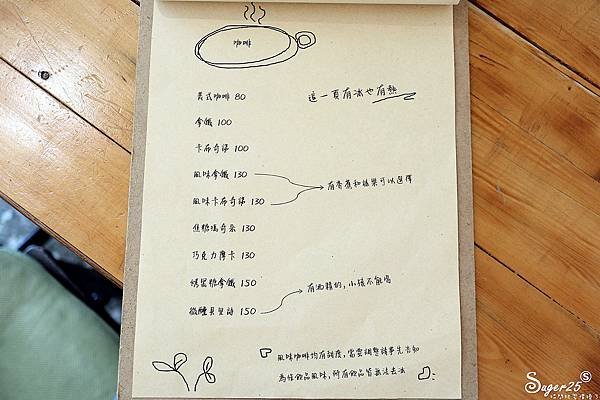 咖啡
美式咖啡 80
這一頁有冰也有熱
拿鐵 100
卡布奇諾 100
風味拿鐵 130
有香蕉和榛果可以選擇
風味卡布奇諾 130
焦糖瑪奇朵 130
巧克力摩卡 130
烤黑糖拿鐵 150
有酒精的,小孩不能喝
微醺貝里詩 150
風味咖啡均有甜度,需要調整請事先告知
為維飲品風味,所有飲品皆無法去冰
Sugar25